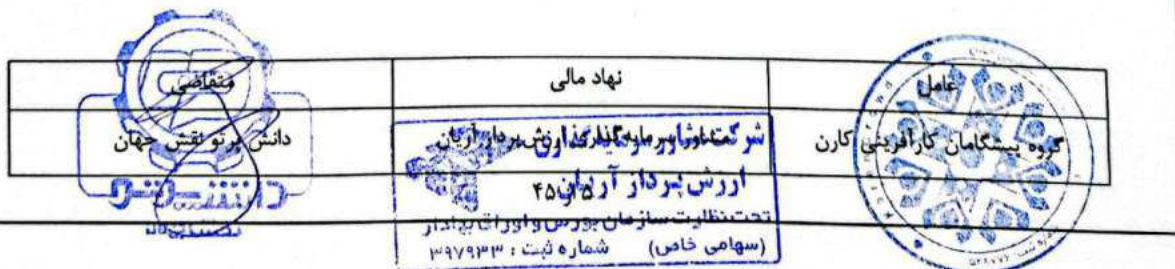 عامل
نهاد مالی
متقاضی
گروه پیشگامان کارآفرینی کارن
مشاور سرمایه‌گذاری ارزش پرداز آریان
دانش پرتو نقش جهان
شرکت مشاور سرمایه‌گذاری
ارزش پرداز آریان
تحت نظارت سازمان بورس و اوراق بهادار
(سهامی خاص) شماره ثبت : ۳۹۷۹۳۳